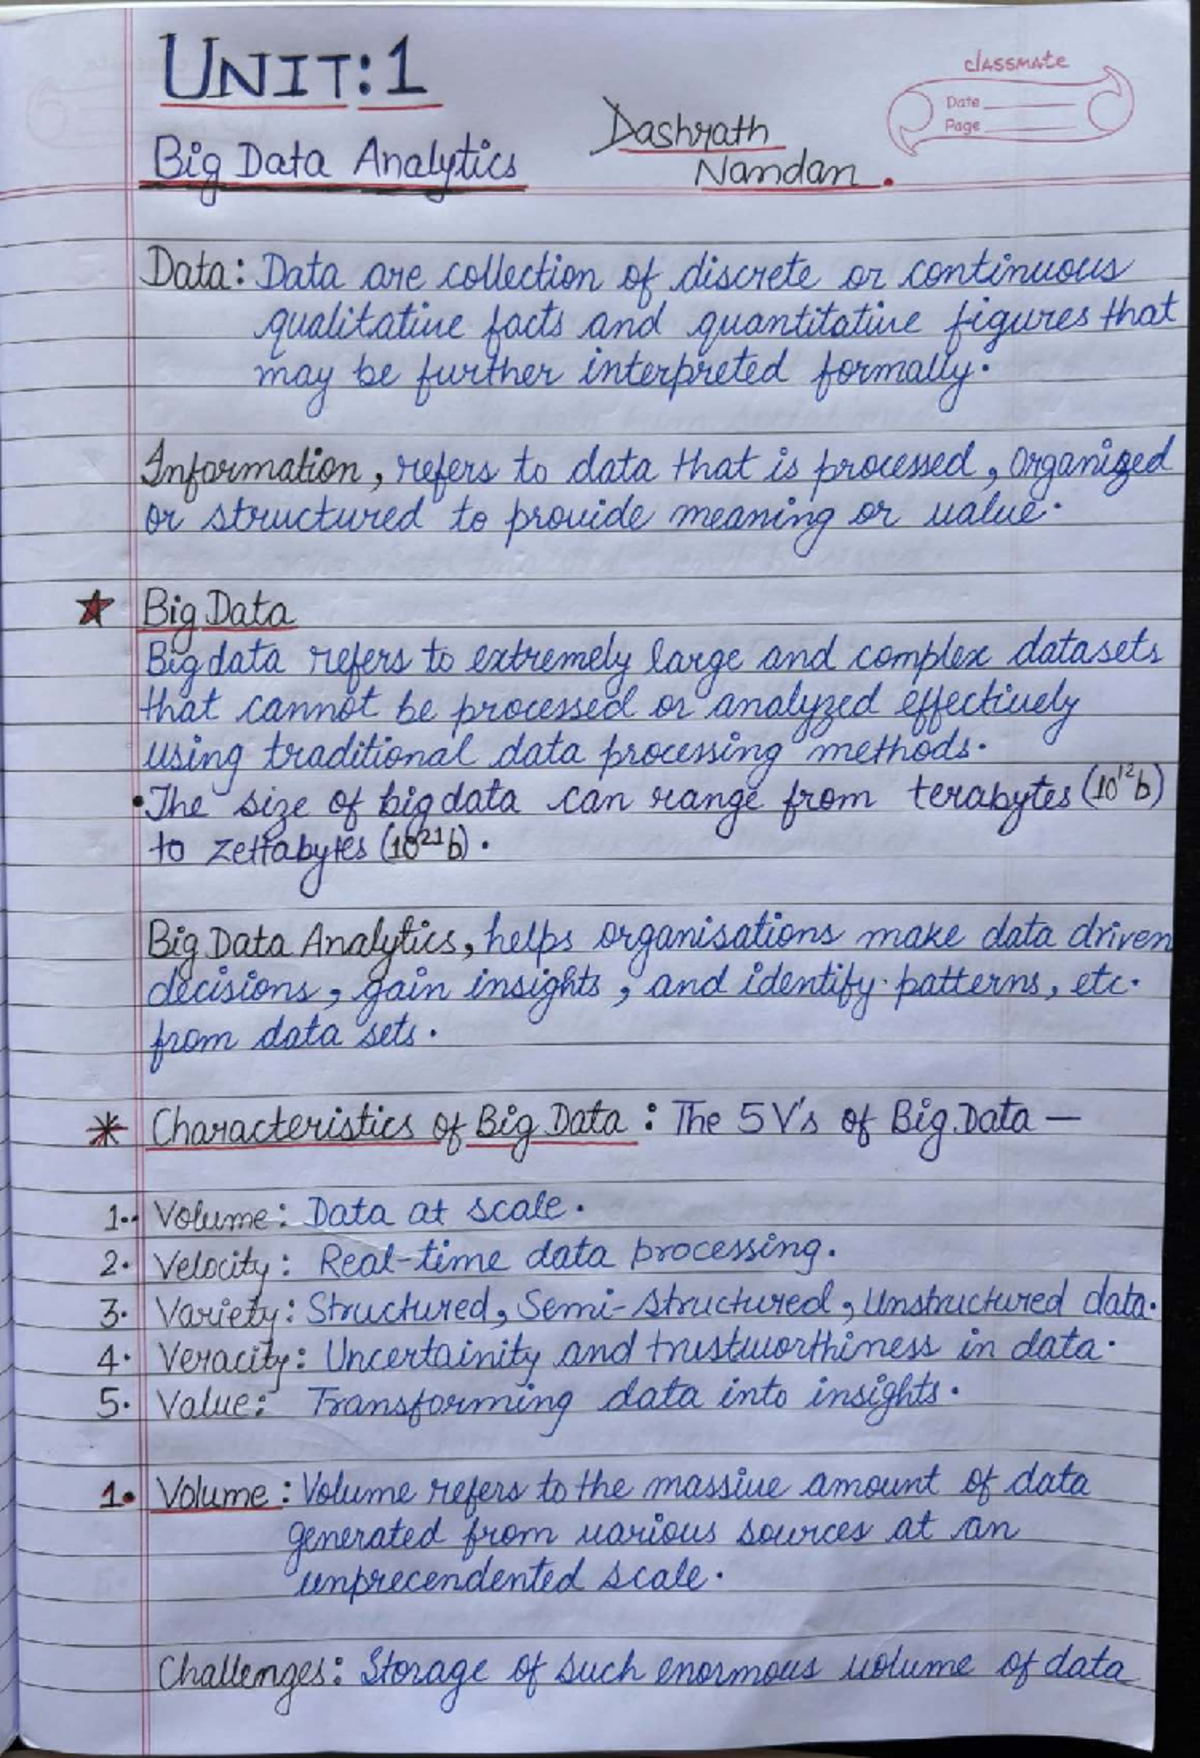 UNIT:1
classmate
Date
Page
Dashrath
Nandan.
Big Data Analytics
Data: Data are collection of discrete or continuous
qualitative facts and quantitative figures that
may be further interpreted formally.
Information, refers to data that is processed, organized
or structured to provide meaning or value.
★ Big Data
Big data refers to extremely large and complex datasets
that cannot be processed or analyzed effectively
using traditional data processing methods.
• The size of big data can range from terabytes (10¹²b)
to zettabytes (10²¹b).
Big Data Analytics, helps organisations make data driven
decisions, gain insights, and identify patterns, etc.
from data sets.
* Characteristics of Big Data: The 5V's of Big Data —
1. Volume: Data at scale.
2. Velocity: Real-time data processing.
3. Variety: Structured, Semi-structured, Unstructured data.
4. Veracity: Uncertainity and trustworthiness in data.
5. Value: Transforming data into insights.
1. Volume: Volume refers to the massive amount of data
generated from various sources at an
unprecendented scale.
Challenges: Storage of such enormous volume of data